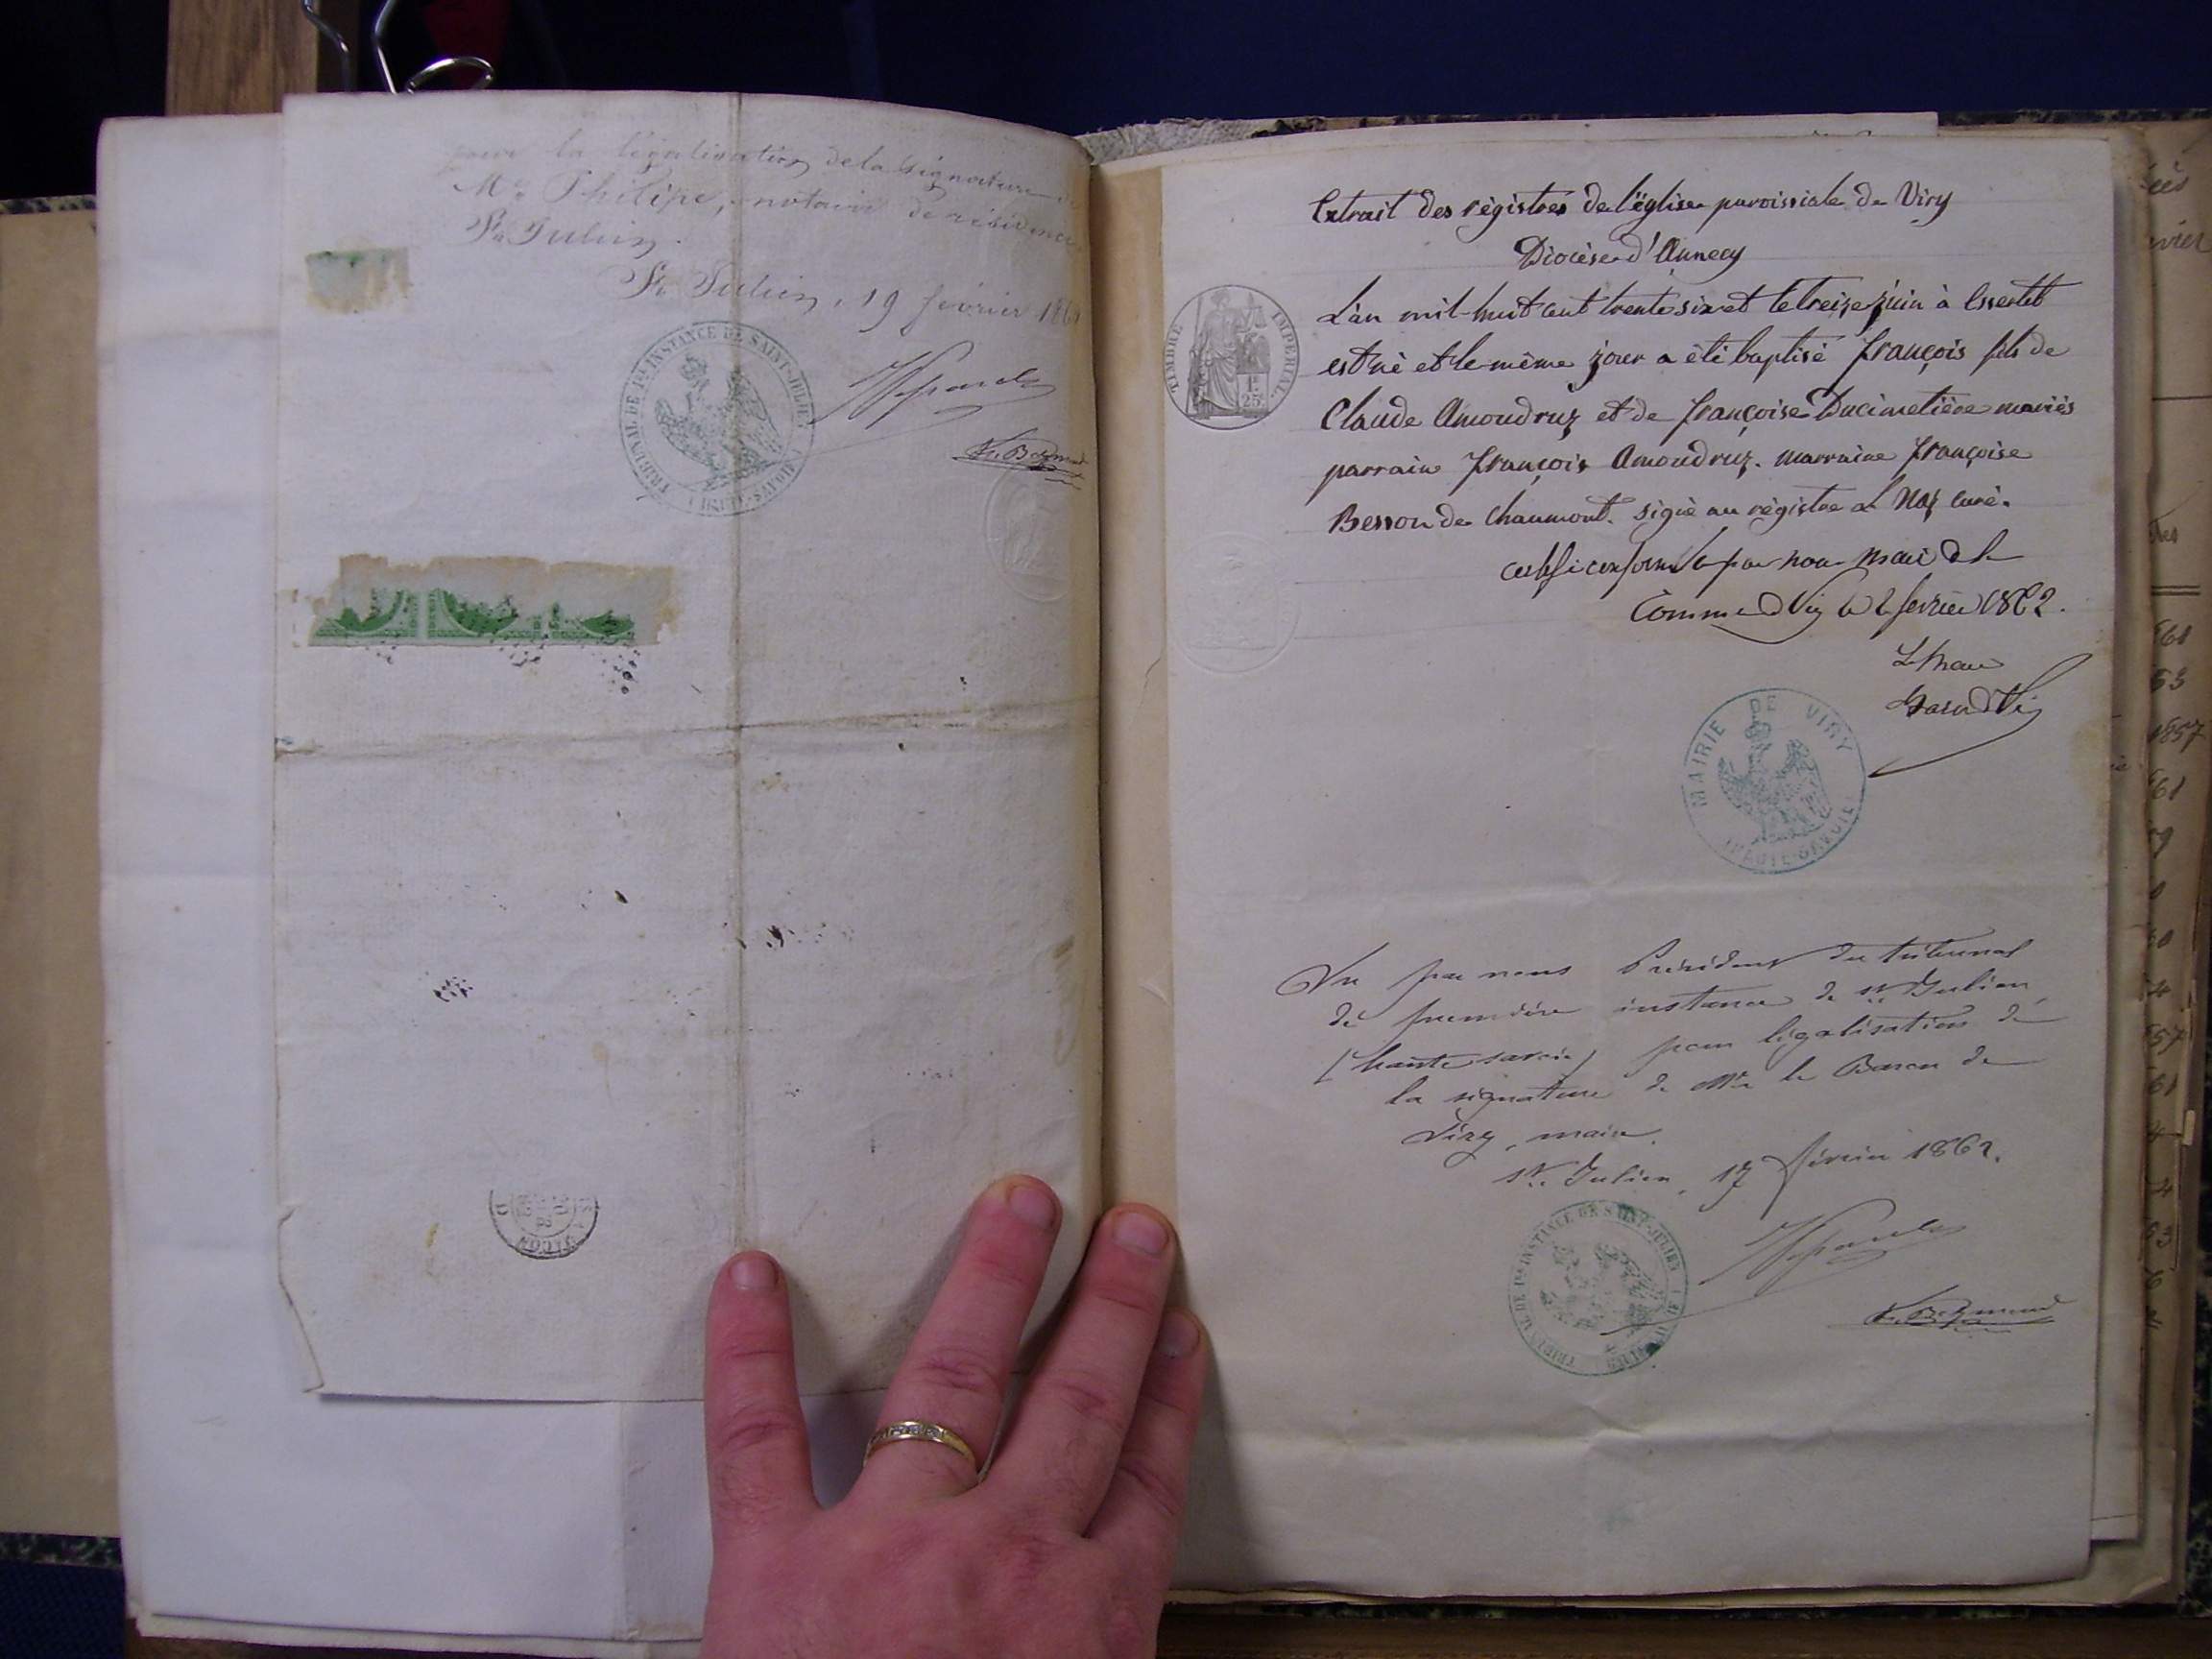 pour la légalisation de la signature de
Me Philipe, notaire de résidence
St Julien.
St Julien, 19 février 186
TRIBUNAL DE 1re INSTANCE DE SAINT-JULIEN
(HTE-SAVOIE)
Extrait des règistres de l'église paroissiale de Viry
Diocèse d'Annecy
TIMBRE IMPERIAL
1f
25c
L'an mil-huit cent trente six et le treize juin à Essertet
est né et le même jour a èté baptisé françois fils de
Claude Amoudruz et de françoise Ducimetière mariés
parrain françois Amoudruz. marraine françoise
Besson de Chaumont. signé au règistre Naz curé.
certifié conforme par nous maire de la
Commune de Viry le 2 fevrier 1862.
Le Maire
Baron de Viry
MAIRIE DE VIRY
(HAUTE-SAVOIE)
Vu par nous Président du tribunal
de première instance de St Julien
(haute savoie) pour légalisation de
la signature de Mr le Baron de
Viry, maire.
St. Julien, 17 février 1862.
TRIBUNAL DE 1re INSTANCE DE SAINT-JULIEN